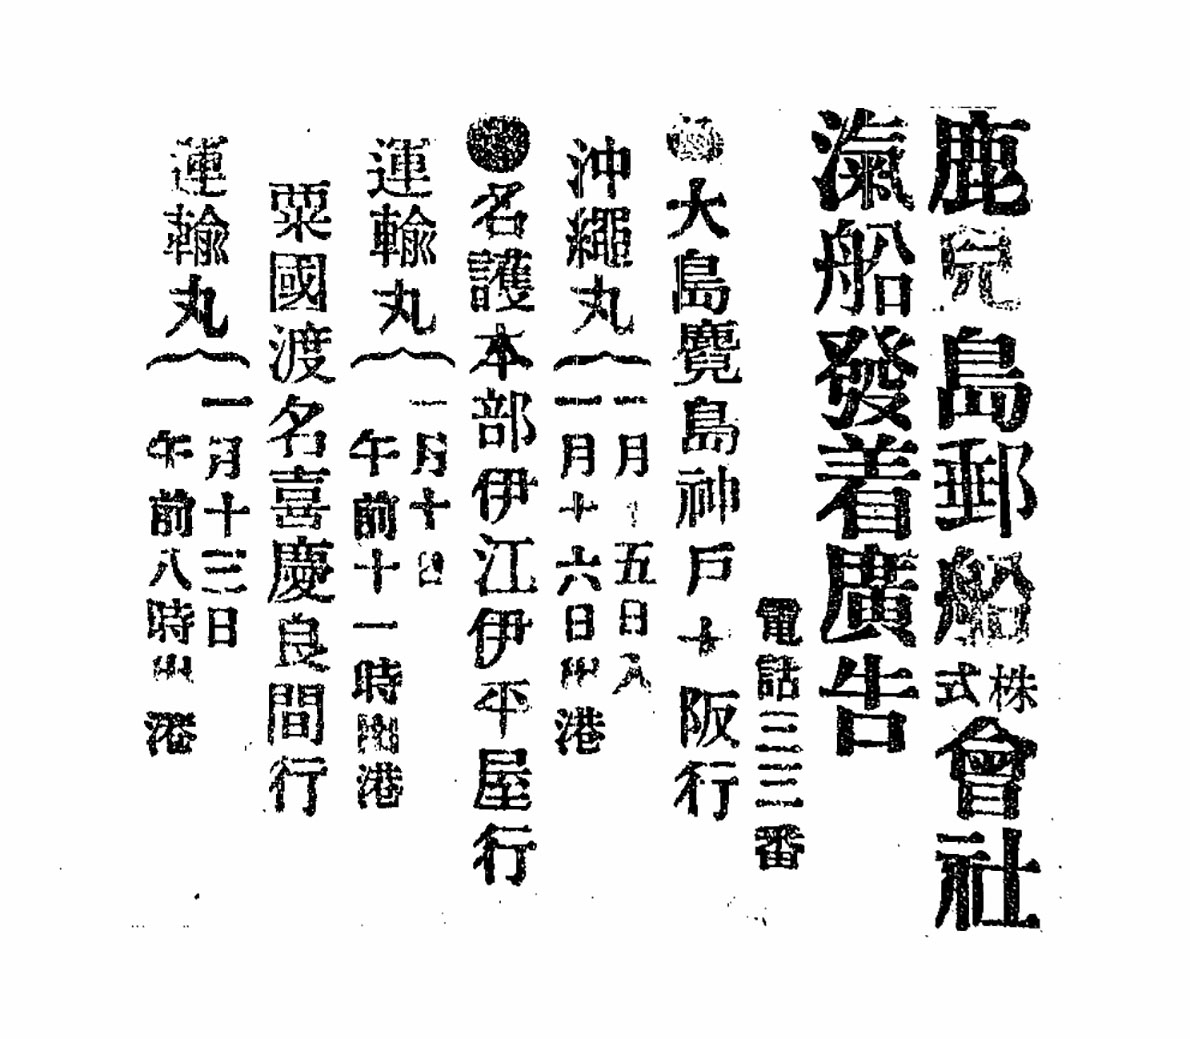 鹿兒島郵船株式會社
滊船發着廣告
電話三三番
●大島麑島神戸大阪行
沖繩丸
一月十五日入
一月十六日出港
●名護本部伊江伊平屋行
運輸丸
一月十日
午前十一時出港
粟國渡名喜慶良間行
運輸丸
一月十三日
午前八時出港